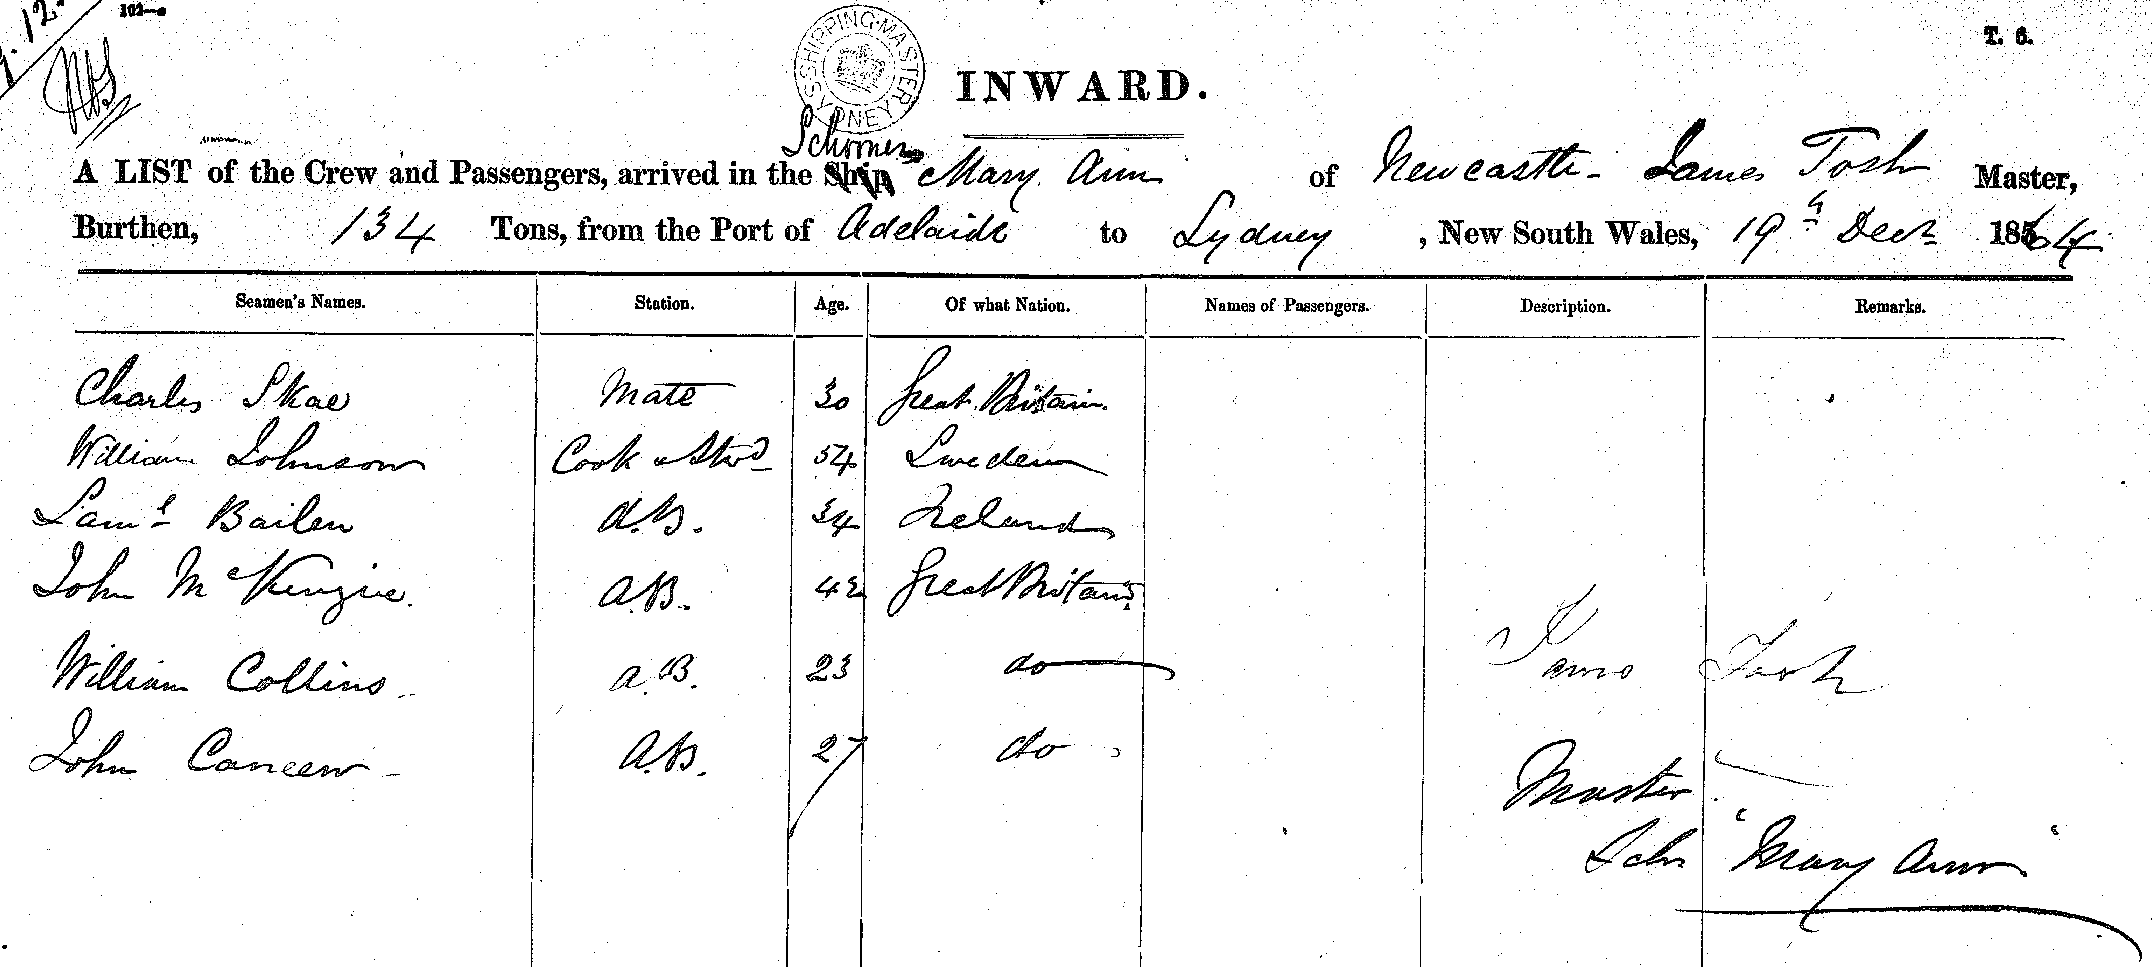 102—a
T. 6.
SHIPPING MASTER SYDNEY
INWARD.
A LIST of the Crew and Passengers, arrived in the Ship Schooner Mary Ann of Newcastle - James Tosh Master,
Burthen, 134 Tons, from the Port of Adelaide to Sydney, New South Wales, 19th Decr 1864
Seamen's Names. Station. Age. Of what Nation. Names of Passengers. Description. Remarks.
Charles Skae Mate 30 Great Britain.
William Johnson Cook & Stwd 54 Sweden
Saml Bailen A.B. 34 Ireland
John McKenzie. A.B. 42 Great Britain
William Collins A.B. 23 do
James Tosh
John Caneen A.B. 27 do
Master
Schr "Mary Ann"